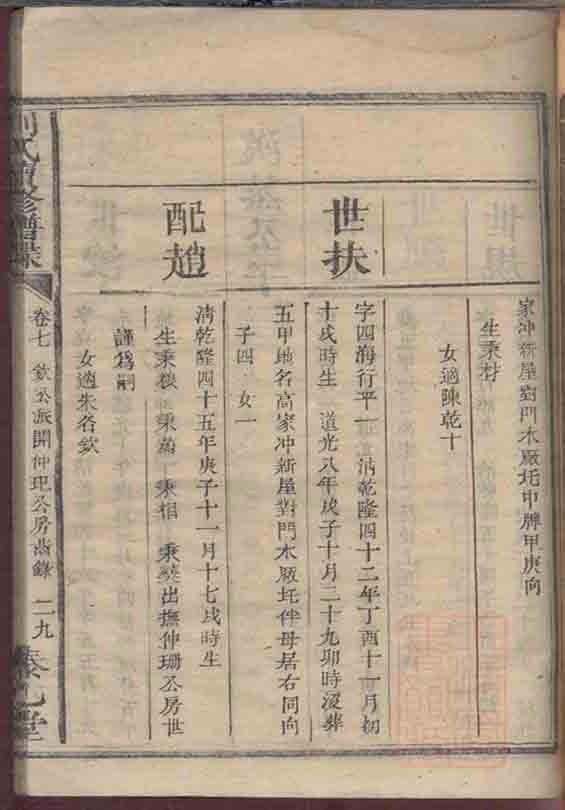 家冲新屋對門木廠圫申牌甲庚向
生秉村
女適陳乾十
世扶
字四海行平一 清乾隆四十二年丁酉十一月初
十戌時生 道光八年戊子十月二十九卯時沒葬
五甲地名高家冲新屋對門木廠圫伴母居右同向
子四 女一
配趙
清乾隆四十五年庚子十一月十七戌時生
生秉 秉 秉相 秉 出撫仲珊公房世
謹為嗣
女適朱名欽
劉氏續修譜牒
卷七 欽公派開仲玘公房齒錄 二九
堂